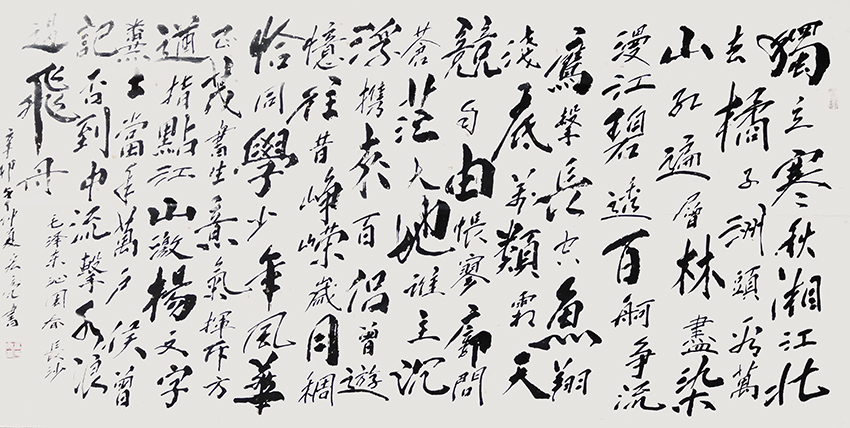 獨立寒秋湘江北
去橘子洲頭看萬
山紅遍層林盡染
漫江碧透百舸爭流
鷹擊長空魚翔
淺底萬類霜天
競自由悵寥廓問
蒼茫大地誰主沉
浮攜來百侶曾遊
憶往昔崢嶸歲月稠
恰同學少年風華
正茂書生意氣揮斥方
遒指點江山激揚文字
糞土當年萬戶侯曾
記否到中流擊水浪
遏飛舟
毛澤東沁園春長沙
辛卯年 書